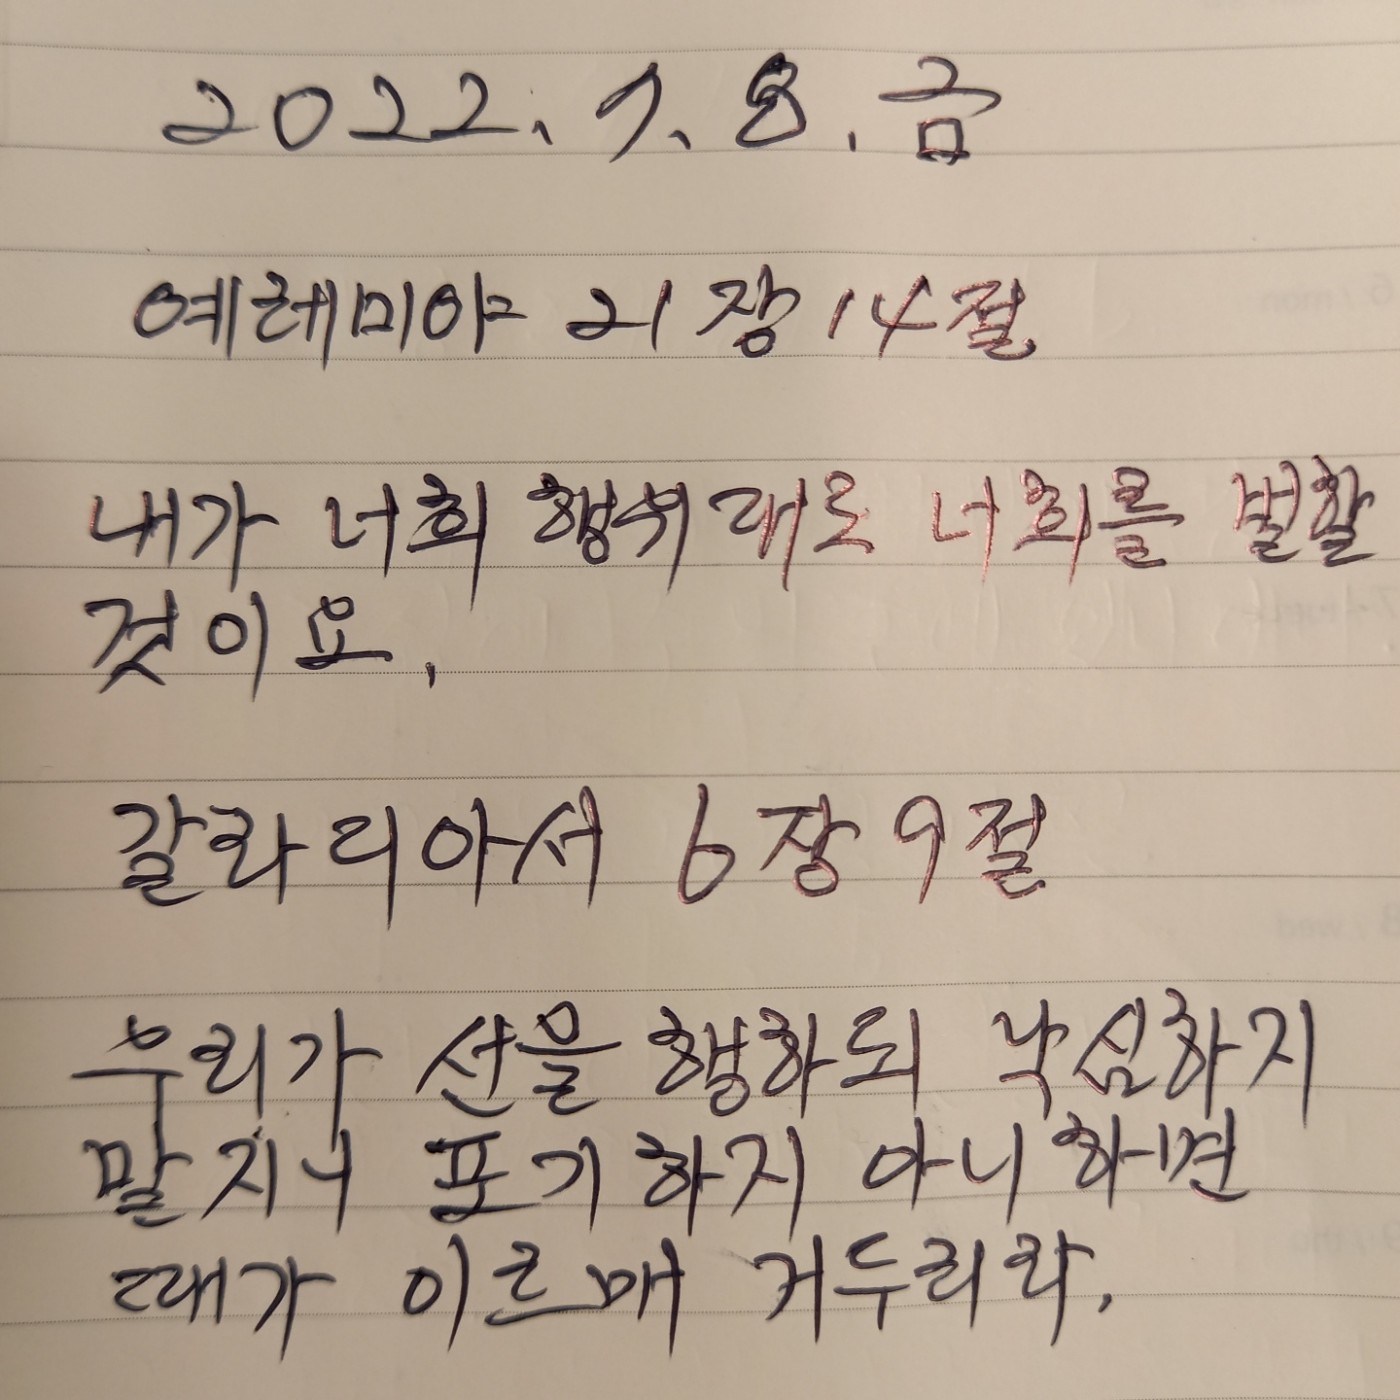 2022. 7. 8. 금
예레미야 21장 14절
내가 너희 행위대로 너희를 벌할
것이요.
갈라디아서 6장 9절
우리가 선을 행하되 낙심하지
말지니 포기하지 아니하면
때가 이르매 거두리라.